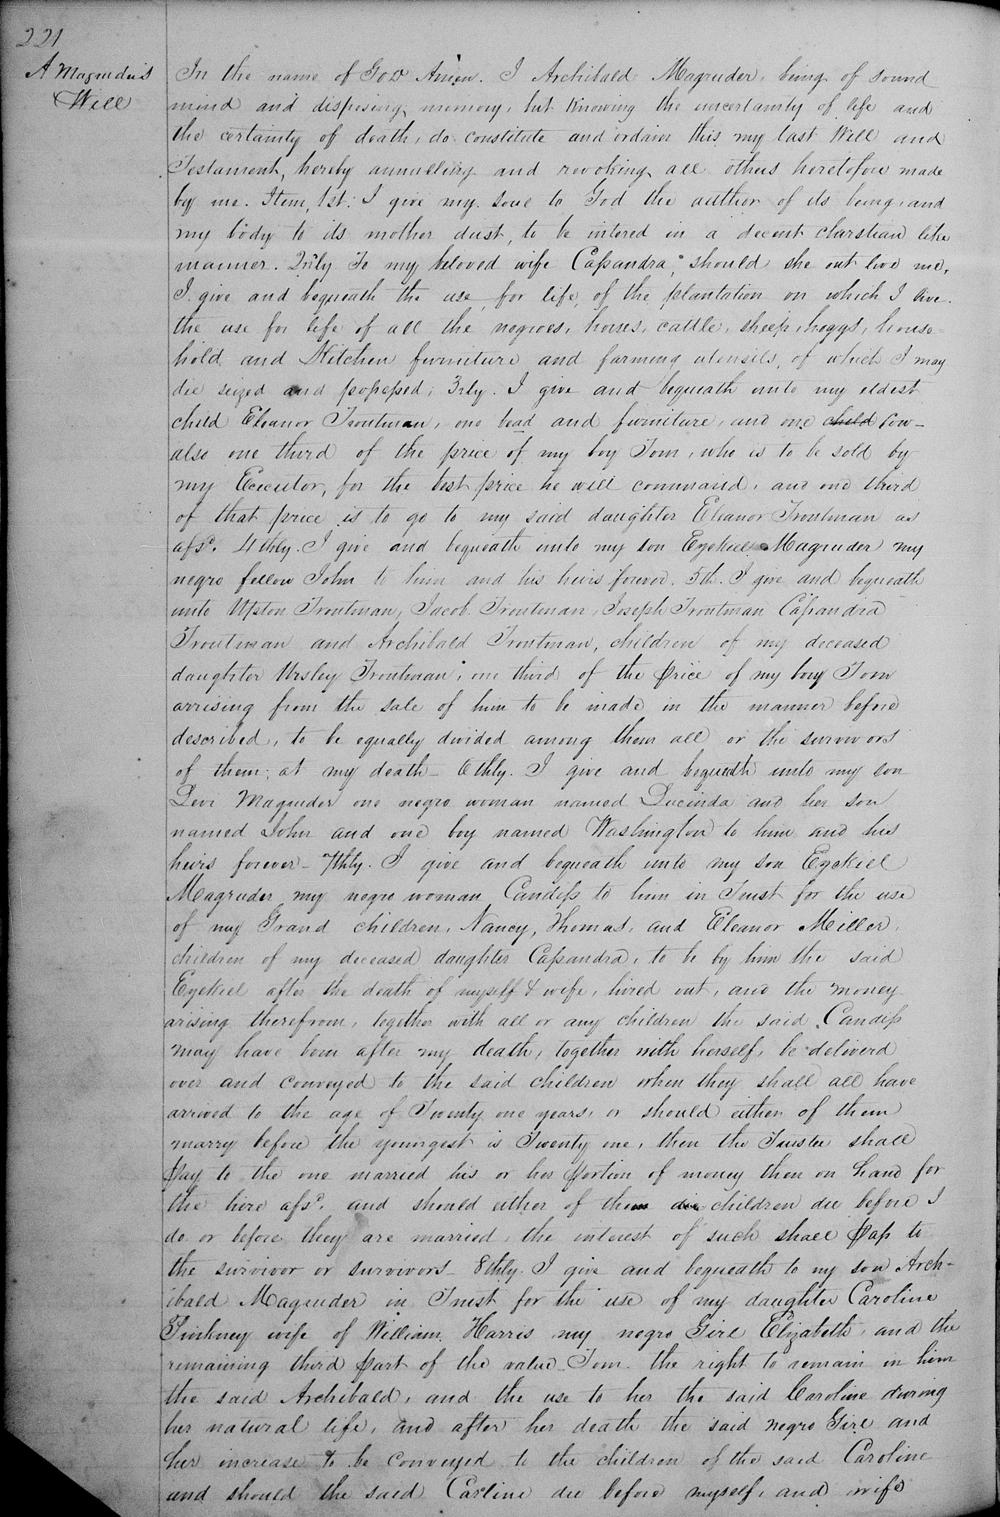 221
A Magruder's
Will
In the name of God Amen. I Archibald Magruder, being of sound
mind and disposing memory, but knowing the uncertainty of life and
the certainty of death, do constitute and ordain this my last Will and
Testament, hereby annulling and revoking all others heretofore made
by me. Item, 1st: I give my soul to God the author of its being, and
my body to its mother dust, to be intered in a decent christian like
manner. 2nly To my beloved wife Cassandra, should she out live me,
I give and bequeath the use, for life, of the plantation on which I live.
the use for life of all the negroes, horses, cattle, sheep, hoggs, house-
hold and Kitchen furniture and farming utensils, of which I may
die seized and possessed; 3rly. I give and bequeath unto my eldest
child Eleanor Troutman, one bead and furniture, and one child Cow-
also one third of the price of my boy Tom, who is to be sold by
my Executor, for the best price he will command, and one third
of that price is to go to my said daughter Eleanor Troutman as
afsd. 4thly. I give and bequeath unto my son Ezekiel Magruder my
negro fellow John to him and his heirs forever. 5th. I give and bequeath
unto Upston Troutman, Jacob Troutman, Joseph Troutman Cassandra
Troutman and Archibald Troutman, children of my deceased
daughter Ursley Troutman, one third of the price of my boy Tom
arrising from the sale of him to be made in the manner before
described, to be equally divided among them all or the survivors
of them, at my death- 6thly. I give and bequeath unto my son
Levi Magruder one negro woman named Lucinda and her son
named John and one boy named Washington to him and his
heirs forever- 7thly. I give and bequeath unto my son Ezekiel
Magruder my negro woman Candiss to him in Trust for the use
of my Grand children, Nancy, Thomas, and Eleanor Miller,
children of my deceased daughter Cassandra, to be by him the said
Ezekiel after the death of myself & wife, hired out, and the money
arising therefrom, together with all or any children the said Candiss
may have born after my death, together with herself, be deliverd
over and conveyed to the said children when they shall all have
arrived to the age of Twenty one years, or should either of them
marry before the youngest is Twenty one, then the Trustee shall
pay to the one married his or her portion of money then on hand for
the hire afsd. and should either of them die children die before I
do or before they are married, the interest of such shall pass to
the survivor or survivors 8thly. I give and bequeath to my son Arch-
ibald Magruder in Trust for the use of my daughter Caroline
Pinkney wife of William Harris my negro Girl Elizabeth, and the
remaining third part of the value Tom the right to remain in him
the said Archibald, and the use to her the said Caroline during
her natural life, and after her death the said negro Girl and
her increase to be conveyed to the children of the said Caroline
and should the said Carline die before myself, and wife